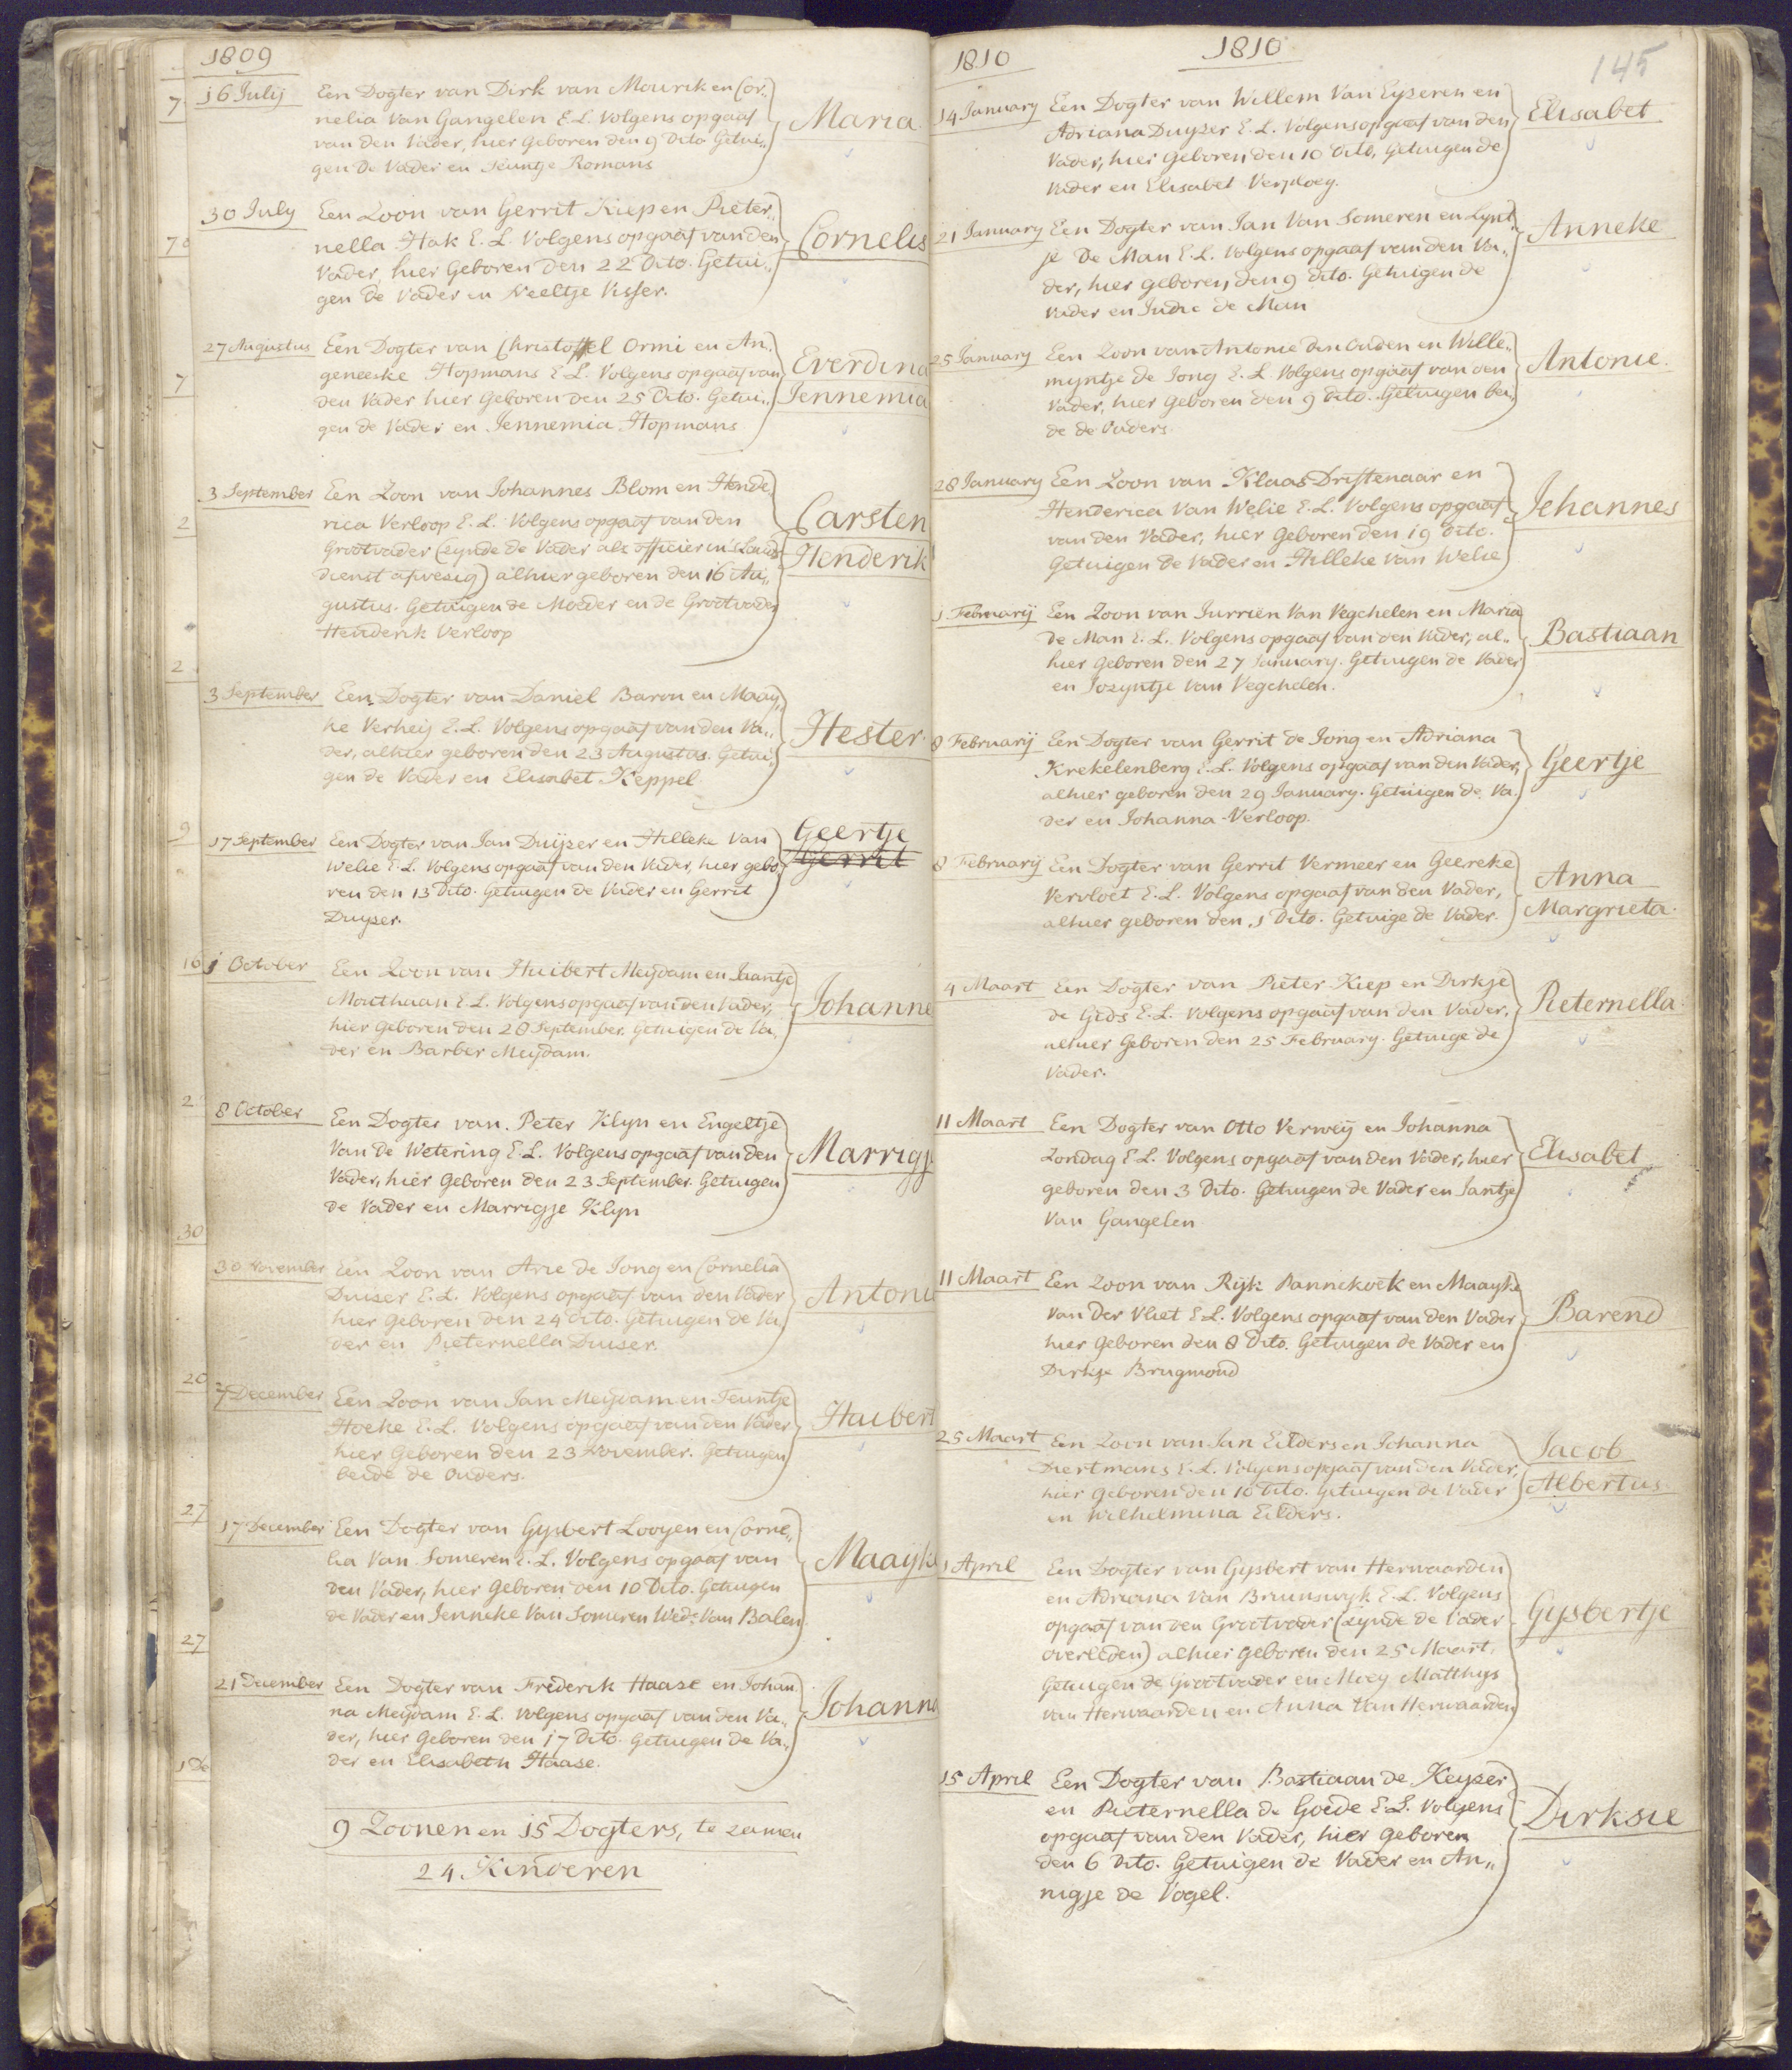 1809
16 Julij
Een Dogter van Dirk van Mourik en Cor„
nelia Van Gangelen E.L. Volgens opgaaf
van den Vader, hier Geboren den 9 Dito Getui„
gen De Vader en Teuntje Romans
Maria
30 July
Een Zoon van Gerrit Kiep en Pieter„
nella Hak E.L. Volgens opgaaf van den
Vader, hier Geboren Den 22 Dito. Getui„
gen de Vader en Neeltje Visser.
Cornelis
27 Augustus
Een Dogter van Christoffel Ormi en An„
geneeske Hopmans E.L. Volgens opgaaf van
den Vader hier Geboren den 25 Dito. Getui„
gen de Vader en Jennemia Hopmans
Everdina
Jennemia
3 September
Een Zoon van Johannes Blom en Hende„
rica Verloop E.L. Volgens opgaaf van den
Grootvader (zynde de Vader als officier in 's Lands
dienst afwesig) alhier geboren den 16 Au„
gustus. Getuigen de Moeder en de Grootvader
Henderik Verloop
Carsten
Henderik
3 September
Een Dogter van Daniel Baron en Maay„
ke Verheij E.L. Volgens opgaaf van den Va„
der, alhier geboren den 23 Augustus. Getui„
gen de Vader en Elisabet Keppel
Hester
17 September
Een Dogter van Jan Duijzer en Hilleke Van
Welie E.L. Volgens opgaaf van den Vader, hier gebo„
ren den 13 Dito. Getuigen de Vader en Gerrit
Duyser.
Geertje
Gerrit
1 October
Een Zoon van Huibert Meijdam en Jaantje
Mouthaan E.L. Volgens opgaaf van den Vader,
hier Geboren den 28 September. Getuigen de Va„
der en Barber Meijdam.
Johanne
8 October
Een Dogter van Peter Klyn en Engeltje
Van de Wetering E.L. Volgens opgaaf van den
Vader, hier Geboren den 23 September. Getuigen
de Vader en Marrigje Klyn
Marrigj
30 November
Een Zoon van Arie de Jong en Cornelia
Duiser E.L. Volgens opgaaf van den Vader
hier Geboren den 24 Dito. Getuigen de Va
der en Pieternella Duiser.
Antoni
7 December
Een Zoon van Jan Meijdam en Teuntje
Hoeke E.L. Volgens opgaaf van den Vader
hier Geboren den 23 November. Getuigen
beide de Ouders.
Huibert
17 December
Een Dogter van Gysbert Looyen en Corne„
lia Van Someren E.L. Volgens opgaaf van
den Vader, hier Geboren den 10 Dito. Getuigen
de Vader en Jenneke Van Someren Wed: Van Balen
Maayk
21 December
Een Dogter van Frederik Haase en Johan„
na Meijdam E.L. Volgens opgaaf van den Va„
der, hier Geboren den 17 Dito. Getuigen de Va„
der en Elisabeth Haase.
Johanna
9 Zoonen en 15 Dogters, te zamen
24. Kinderen
1810
1810
145
14 January
Een Dogter van Willem Van Eyzeren en
Adriana Duyzer E.L. Volgens opgaaf van den
Vader, hier Geboren den 10 Dito, Getuigen de
Vader en Elisabet Verploeg.
Elisabet
21 January
Een Dogter van Jan Van Someren en Lynt„
je De Man E.L. Volgens opgaaf van den Va„
der, hier geboren den 9 dito. Getuigen de
Vader en Judic de Man
Anneke
25 January
Een Zoon van Antonie den Ouden en Wille„
myntje de Jong E.L. Volgens opgaaf van den
Vader, hier Geboren den 9 dito. Getuigen bei„
de de Ouders
Antonie.
28 January
Een Zoon van Klaas Driftenaar en
Henderica Van Welie E.L. Volgens opgaaf
van den Vader, hier Geboren den 19 dito.
Getuigen de Vader en Hilleke van Welie
Johannes
1 Februarij
Een Zoon van Jurrien Van Vegchelen en Maria
de Man E.L. Volgens opgaaf van den Vader, al„
hier Geboren den 27 January. Getuigen de Vader
en Jozyntje van Vegchelen.
Bastiaan
8 Februarij
Een Dogter van Gerrit de Jong en Adriana
Krekelenberg E.L. Volgens opgaaf van den Vader,
alhier geboren den 29 January. Getuigen de Va„
der en Johanna Verloop.
Geertje
8 Februarij
Een Dogter van Gerrit Vermeer en Geereke
Vervloet E.L. Volgens opgaaf van den Vader,
alhier geboren den 1 Dito. Getuige de Vader.
Anna
Margrieta.
4 Maart
Een Dogter van Pieter Kiep en Dirkje
de Gids E.L. Volgens opgaaf van den Vader,
alhier Geboren den 25 February. Getuige de
Vader.
Pieternella
11 Maart
Een Dogter van Otto Verweij en Johanna
Zondag E.L. Volgens opgaaf van den Vader, hier
geboren den 3 Dito. Getuigen de Vader en Jantje
Van Gangelen
Elisabet
11 Maart
Een Zoon van Rijk Pannekoek en Maayke
van der Vliet E.L. Volgens opgaaf van den Vader
hier Geboren den 8 Dito. Getuigen de Vader en
Dirkje Brugmond
Barend
25 Maart
Een Zoon van Jan Eilders en Johanna
Diertmans E.L. Volgens opgaaf van den Vader,
hier Geboren den 10 Dito. Getuigen de Vader
en Wilhelmina Eilders.
Jacob
Albertus
1 April
Een Dogter van Gysbert van Herwaarden
en Adriana Van Brunswyk E.L. Volgens
opgaaf van den Grootvader (zynde de Vader
overleden) alhier Geboren den 25 Maart.
Getuigen de Grootvader en Moey Matthys
van Herwaarden en Anna Van Herwaarden
Gysbertje
15 April
Een Dogter van Bastiaan de Keyzer
en Pieternella de Goede E.L. Volgens
opgaaf van den Vader, hier Geboren
den 6 Dito. Getuigen de Vader en An„
nigje de Vogel.
Dirksie